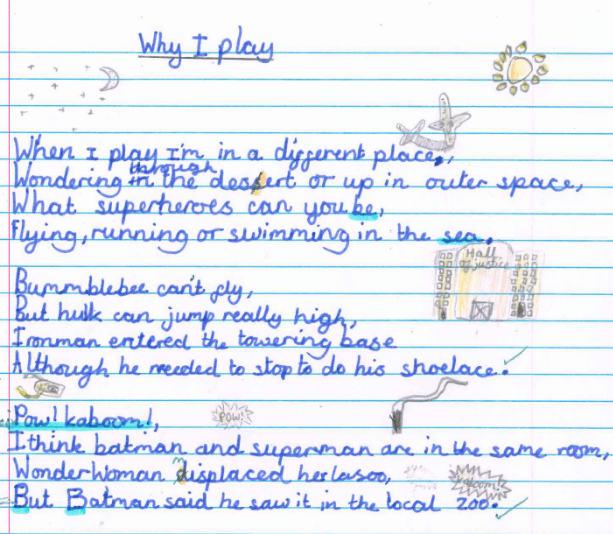 Why I play
When I play I'm in a different place,
Wondering through the desert or up in outer space,
What superheroes can you be,
Flying, running or swimming in the sea.
Hall of justice
Bummblebee can't fly,
But hulk can jump really high,
Ironman entered the towering base
Although he needed to stop to do his shoelace.
Pow! kaboom!,
POW!
I think batman and superman are in the same room,
WonderWoman misplaced her lasoo,
Kaboom!
But Batman said he saw it in the local zoo.